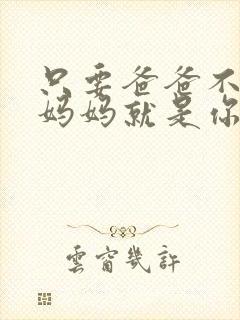 只要爸爸不
妈妈就是你
雲窗幾許